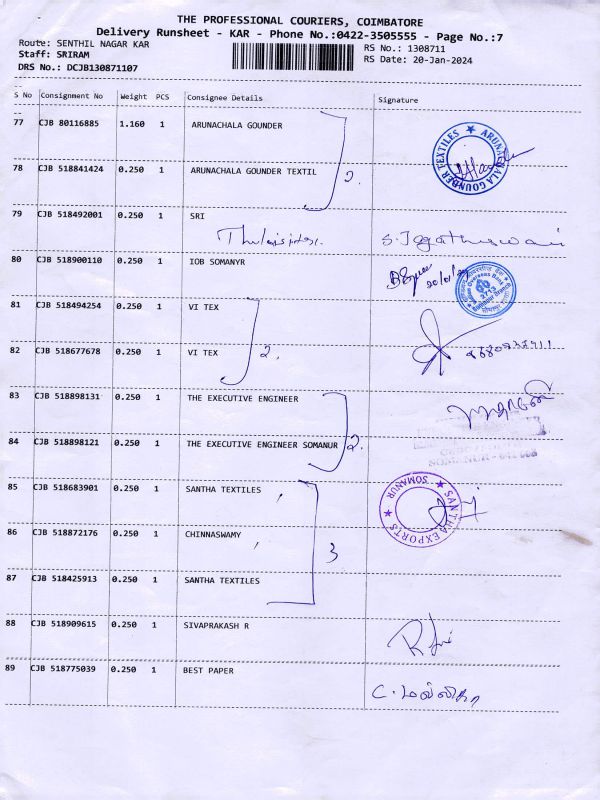 THE PROFESSIONAL COURIERS, COIMBATORE
Delivery Runsheet - KAR - Phone No.:0422-3505555 - Page No.:7
Route: SENTHIL NAGAR KAR
RS No.: 1308711
Staff: SRIRAM
RS Date: 20-Jan-2024
DRS No.: DCJB130871107
S No Consignment No Weight PCS Consignee Details Signature
77 CJB 80116885 1.160 1 ARUNACHALA GOUNDER
ARUNACHALA GOUNDER TEXTILES
78 CJB 518841424 0.250 1 ARUNACHALA GOUNDER TEXTIL
2.
79 CJB 518492001 0.250 1 SRI
80 CJB 518900110 0.250 1 IOB SOMANYR
81 CJB 518494254 0.250 1 VI TEX
82 CJB 518677678 0.250 1 VI TEX
2.
83 CJB 518898131 0.250 1 THE EXECUTIVE ENGINEER
84 CJB 518898121 0.250 1 THE EXECUTIVE ENGINEER SOMANUR
2.
85 CJB 518683901 0.250 1 SANTHA TEXTILES
SANTHA EXPORTS SOMANUR
86 CJB 518872176 0.250 1 CHINNASWAMY
3
87 CJB 518425913 0.250 1 SANTHA TEXTILES
88 CJB 518909615 0.250 1 SIVAPRAKASH R
89 CJB 518775039 0.250 1 BEST PAPER